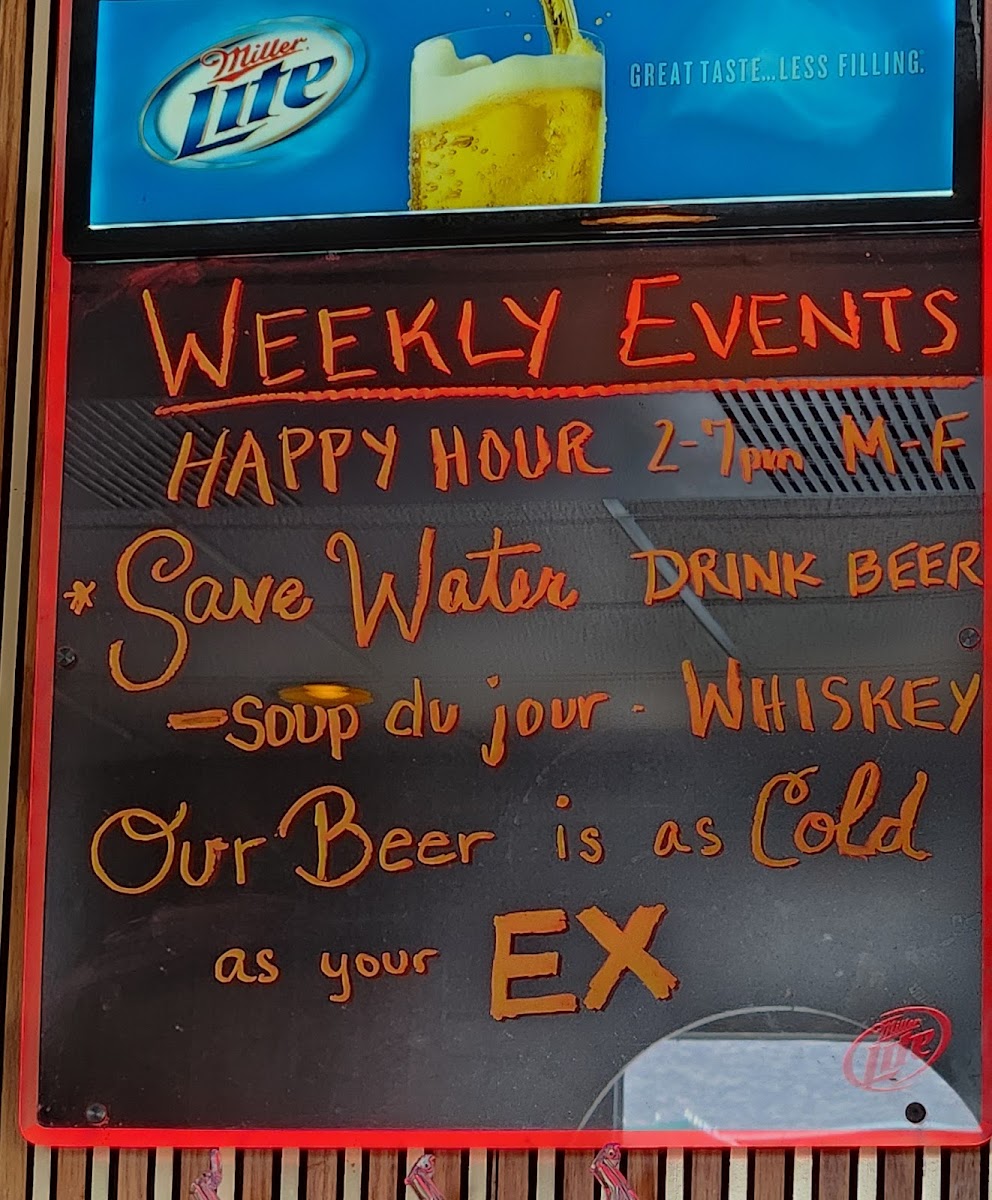 Miller
Lite
GREAT TASTE...LESS FILLING.
WEEKLY EVENTS
HAPPY HOUR 2-7pm M-F
* Save Water DRINK BEER
- soup du jour - WHISKEY
Our Beer is as Cold
as your EX
Miller
Lite